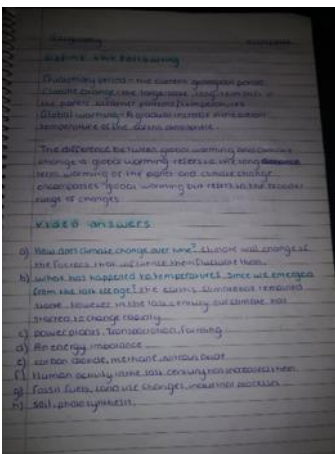 Define the following
Quaternary period - the current geological period
Climate change - the large-scale, long-term shift in
the planet's weather patterns/temperatures
Global warming - A gradual increase in the overall
temperature of the earth's atmosphere
The difference between global warming and climate
change is global warming refers to the long
term warming of the planet and climate change
encompasses global warming but refers to the broader
range of changes
Video answers
a) How does climate change over time? Climate will change if
the factors that influence them fluctuate then.
b) What has happened to temperatures since we emerged
from the last ice age? the earth's climate has remained
stable, however in the last century our climate has
started to change rapidly
c) power plants, Transportation, farming
d) An energy imbalance
e) carbon dioxide, methane, nitrous oxide
f) Human activity in the last century has increased them
g) Fossil fuels, land use changes, industrial processes
h) soil, photosynthesis.